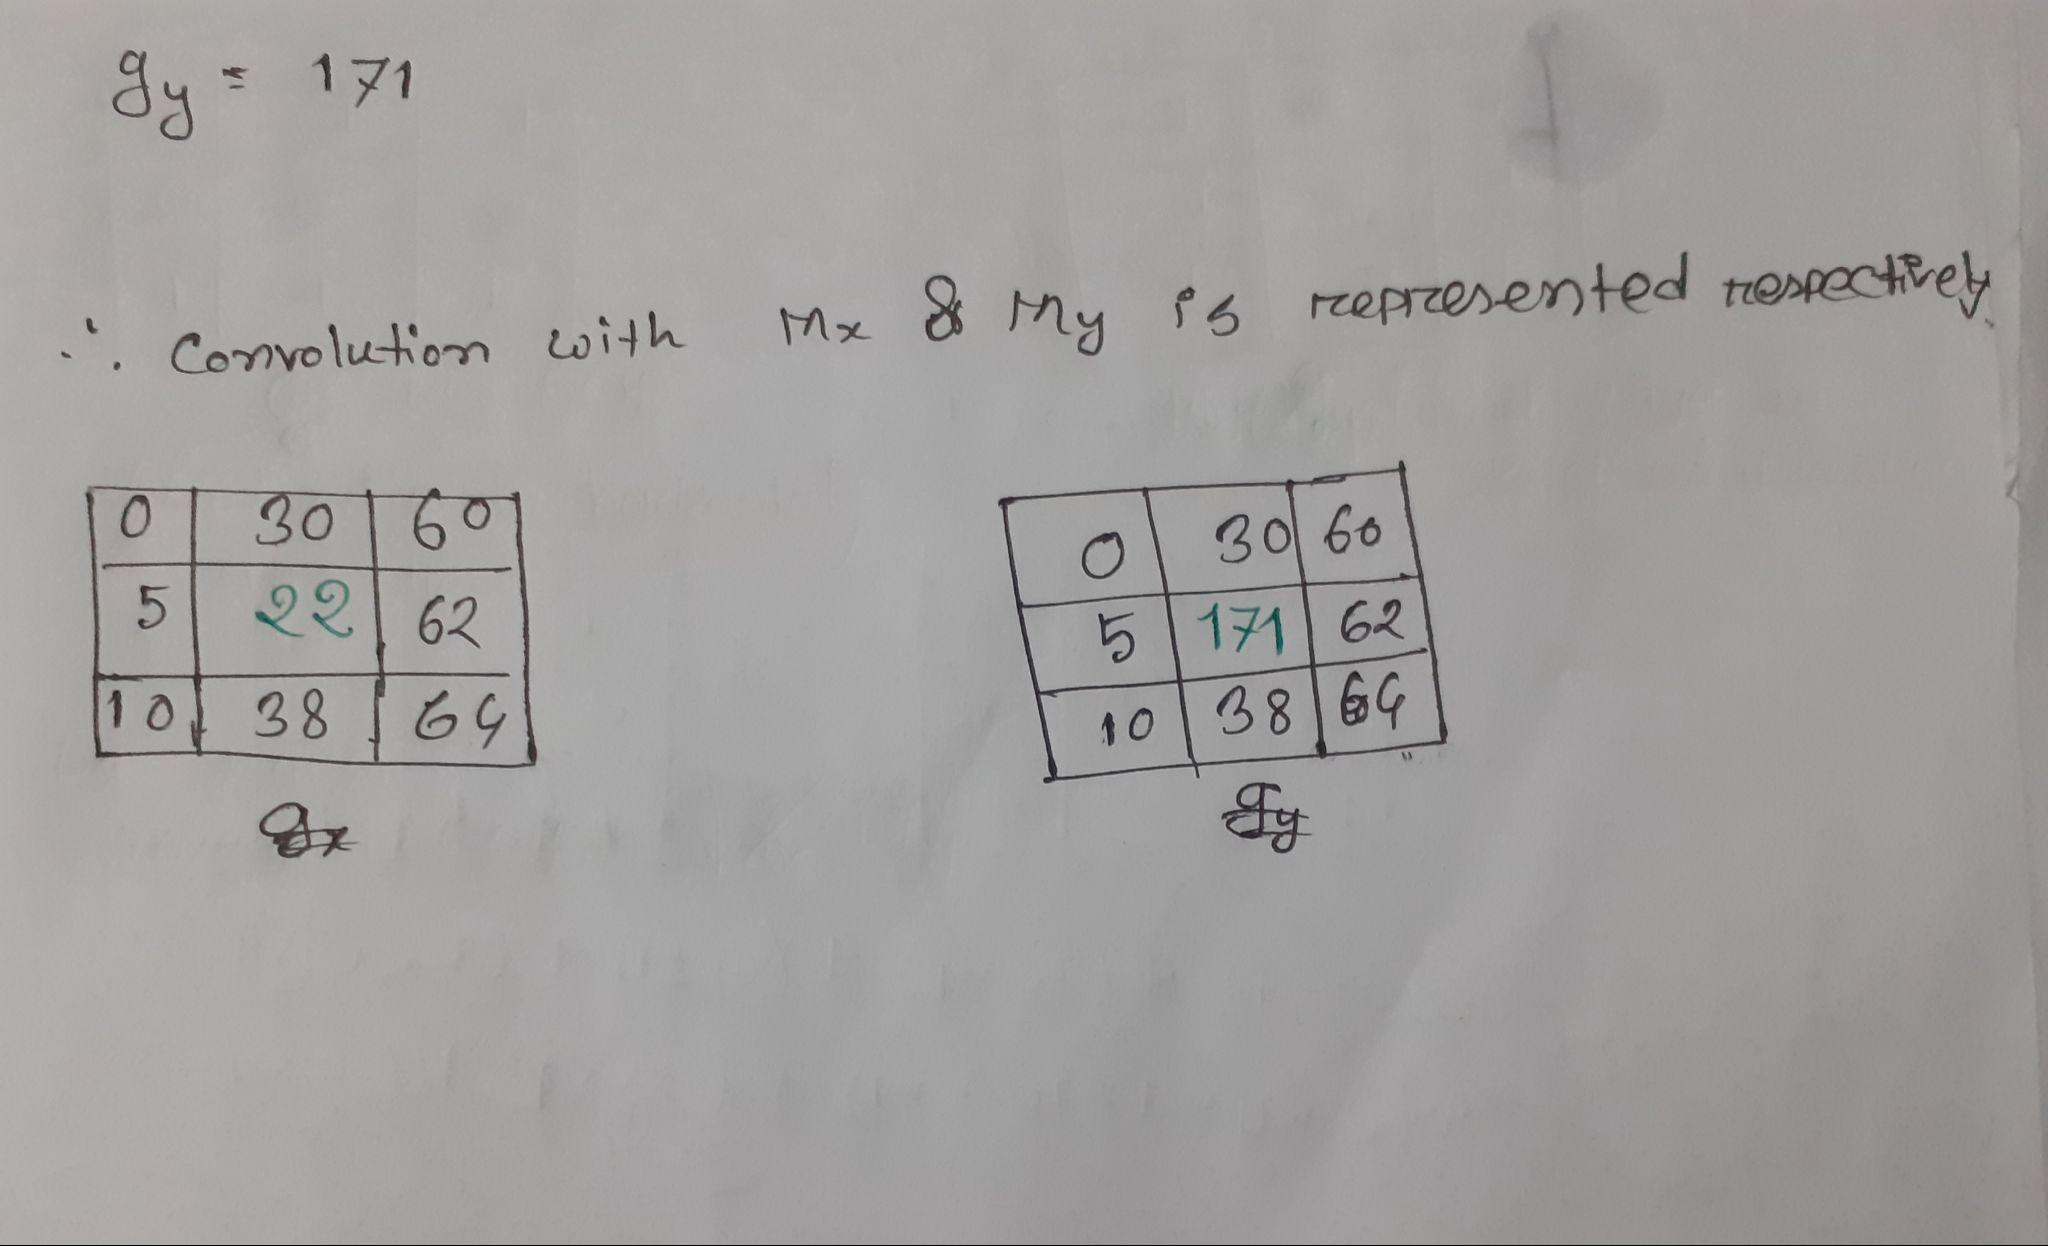 gy = 171
∴ Convolution with Mx & My is represented respectively.
0 30 60
5 22 62
10 38 64
gx
0 30 60
5 171 62
10 38 64
gy